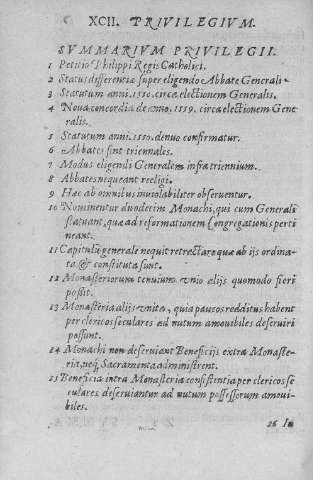 XCII. PRIVILEGIVM.
SVMMARIVM PRIVILEGII.
1 Petitio Philippi Regis Catholici.
2 Status differentiæ super eligendo Abbate Generali.
3 Statutum anni. 1550. circa electionem Generalis.
4 Noua concordia de anno. 1559. circa electionem Gene
ralis.
5 Statutum anni. 1550. denuo confirmatur.
6 Abbates sint triennales.
7 Modus eligendi Generalem infra triennium.
8 Abbates nequeant reeligi.
9 Hæc ab omnibus inuiolabiliter obseruentur.
10 Nominentur duodecim Monachi, qui cum Generali
statuant, quæ ad reformationem Congregationis perti
neant.
11 Capitulū generale nequit retrectare quæ ab ijs ordina
ta & constituta sunt.
12 Monasteriorum tenuium vnio alijs quomodo fieri
possit.
13 Monasteria alijs vnita, quia paucos redditus habent
per clericos seculares ad nutum amouibiles deseruiri
possunt.
14 Monachi non deseruiant Beneficijs extra Monaste-
ria, neq; Sacramenta administrent.
15 Beneficia intra Monasteria consistentia per clericos se
culares deseruiantur ad nutum possessorum amoui-
biles.
16 In